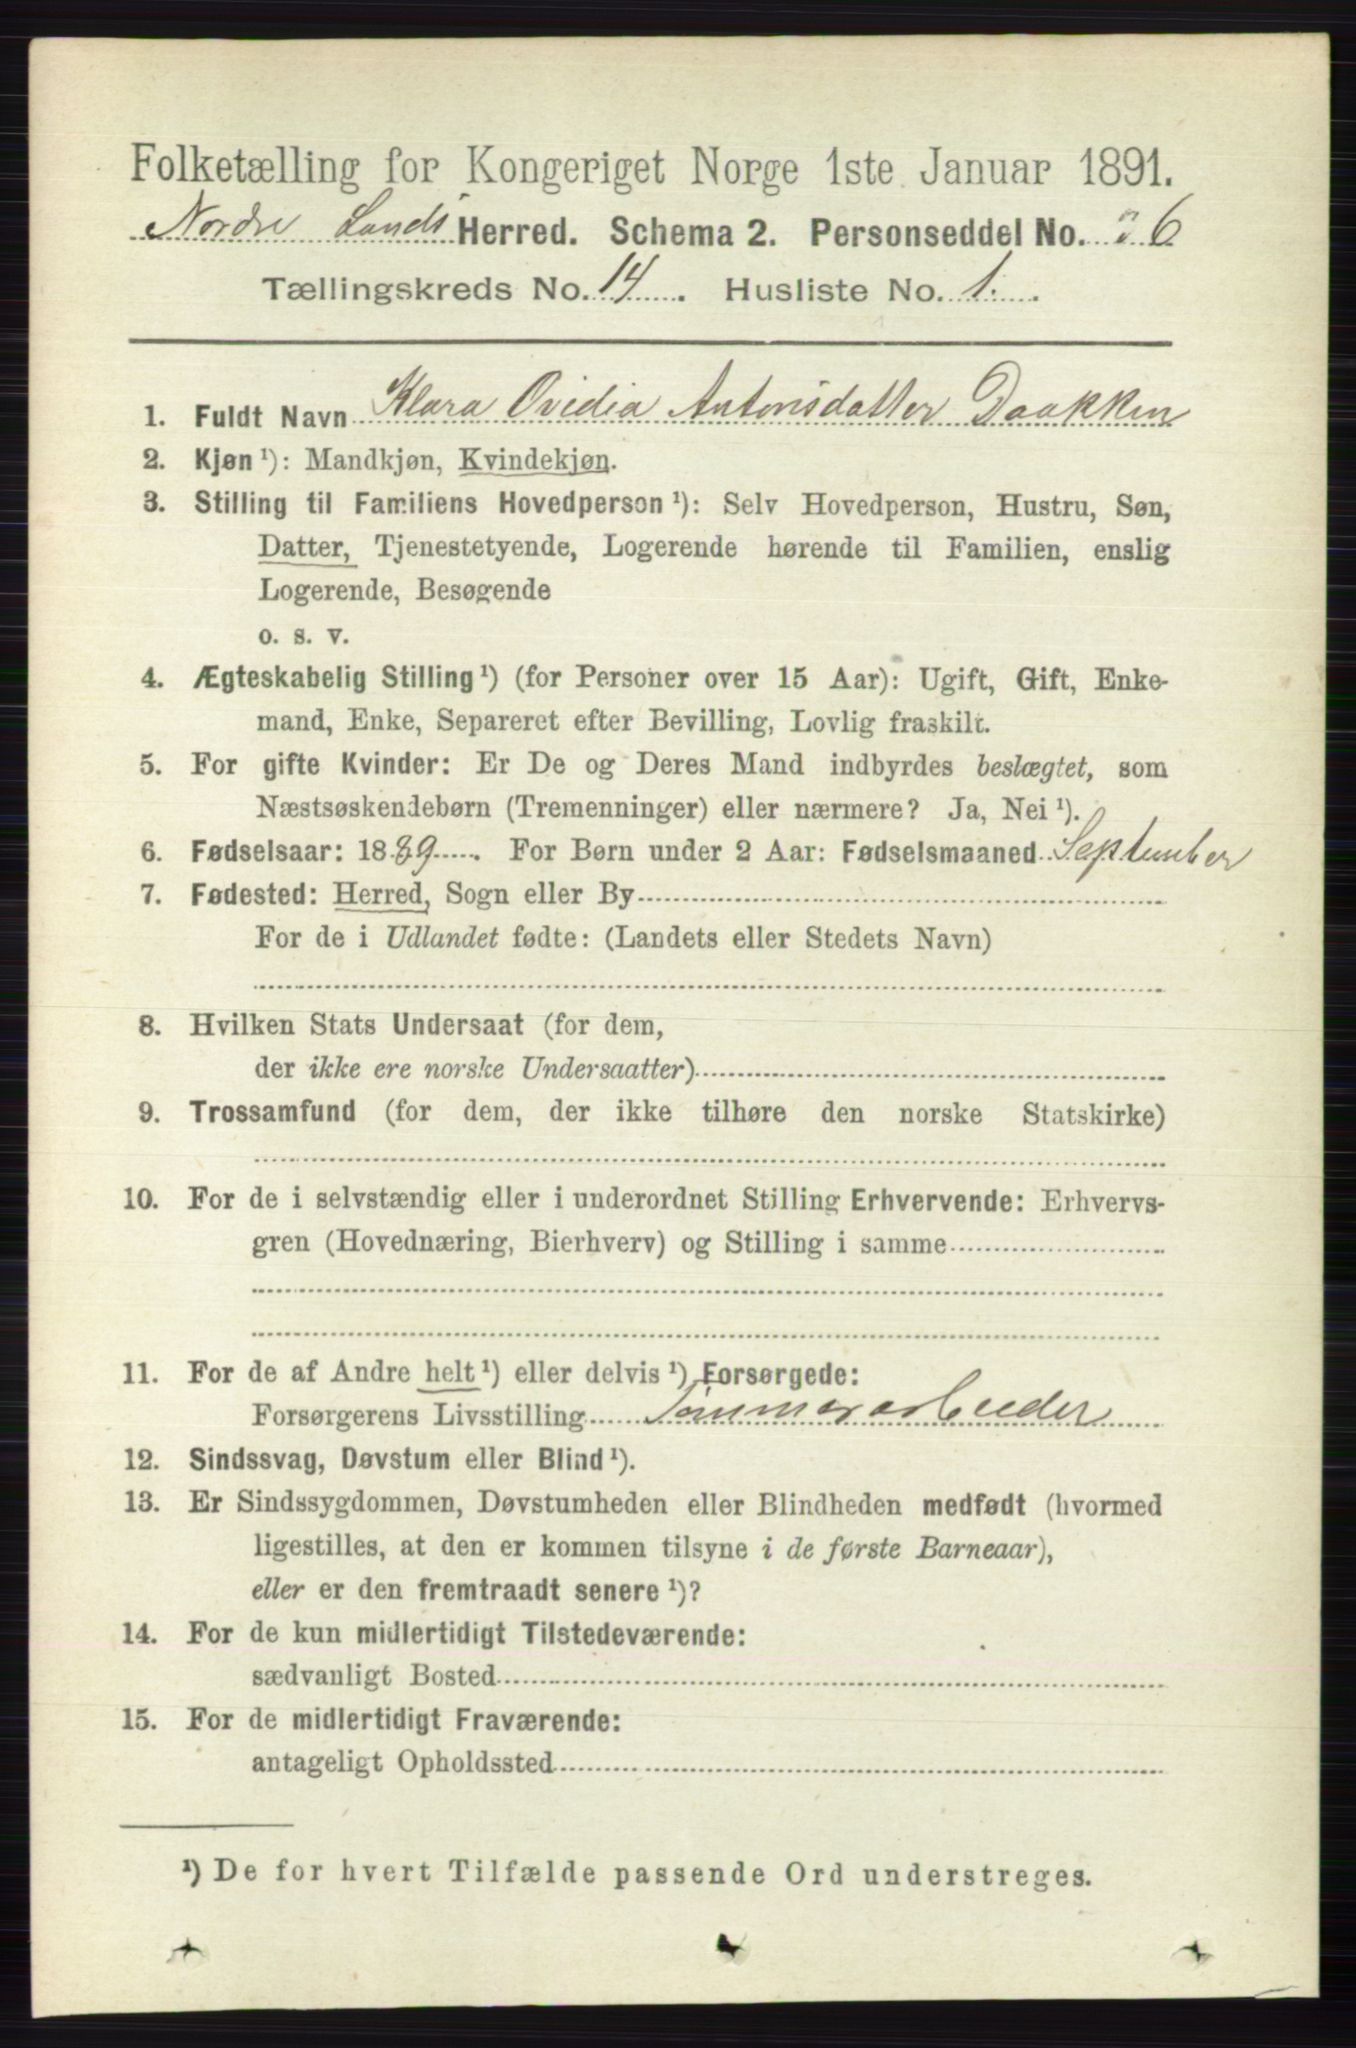 Folketælling for Kongeriget Norge 1ste Januar 1891.
Nordre Lands Herred. Schema 2. Personseddel No. 6
Tællingskreds No. 14. Husliste No. 1.
1. Fuldt Navn Klara Ovidia Antonsdatter Daakken
2. Kjøn ¹): Mandkjøn, Kvindekjøn.
3. Stilling til Familiens Hovedperson ¹): Selv Hovedperson, Hustru, Søn,
Datter, Tjenestetyende, Logerende hørende til Familien, enslig
Logerende, Besøgende
o. s. v.
4. Ægteskabelig Stilling ¹) (for Personer over 15 Aar): Ugift, Gift, Enke-
mand, Enke, Separeret efter Bevilling, Lovlig fraskilt.
5. For gifte Kvinder: Er De og Deres Mand indbyrdes beslægtet, som
Næstsøskendebørn (Tremenninger) eller nærmere? Ja, Nei ¹).
6. Fødselsaar: 1889. For Børn under 2 Aar: Fødselsmaaned September
7. Fødested: Herred, Sogn eller By
For de i Udlandet fødte: (Landets eller Stedets Navn)
8. Hvilken Stats Undersaat (for dem,
der ikke ere norske Undersaatter)
9. Trossamfund (for dem, der ikke tilhøre den norske Statskirke)
10. For de i selvstændig eller i underordnet Stilling Erhvervende: Erhvervs-
gren (Hovednæring, Bierhverv) og Stilling i samme
11. For de af Andre helt ¹) eller delvis ¹) Forsørgede:
Forsørgerens Livsstilling Tømmerarbeider
12. Sindssvag, Døvstum eller Blind ¹).
13. Er Sindssygdommen, Døvstumheden eller Blindheden medfødt (hvormed
ligestilles, at den er kommen tilsyne i de første Barneaar),
eller er den fremtraadt senere ¹)?
14. For de kun midlertidigt Tilstedeværende:
sædvanligt Bosted
15. For de midlertidigt Fraværende:
antageligt Opholdssted
¹) De for hvert Tilfælde passende Ord understreges.